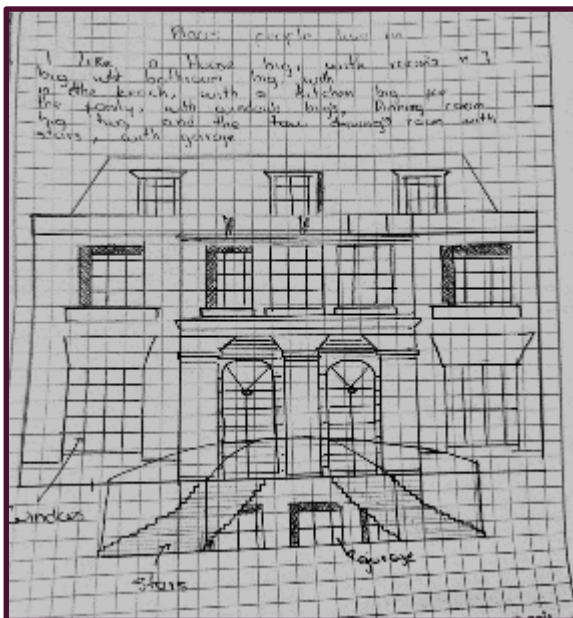 Places people live in
I like a House big, with rooms n° 3
big with bathroom big, with
in the beach, with a kitchen big for
the family, with windows bigs, Dinning room
big and the room with
stairs, with garage
windows
stairs
garage